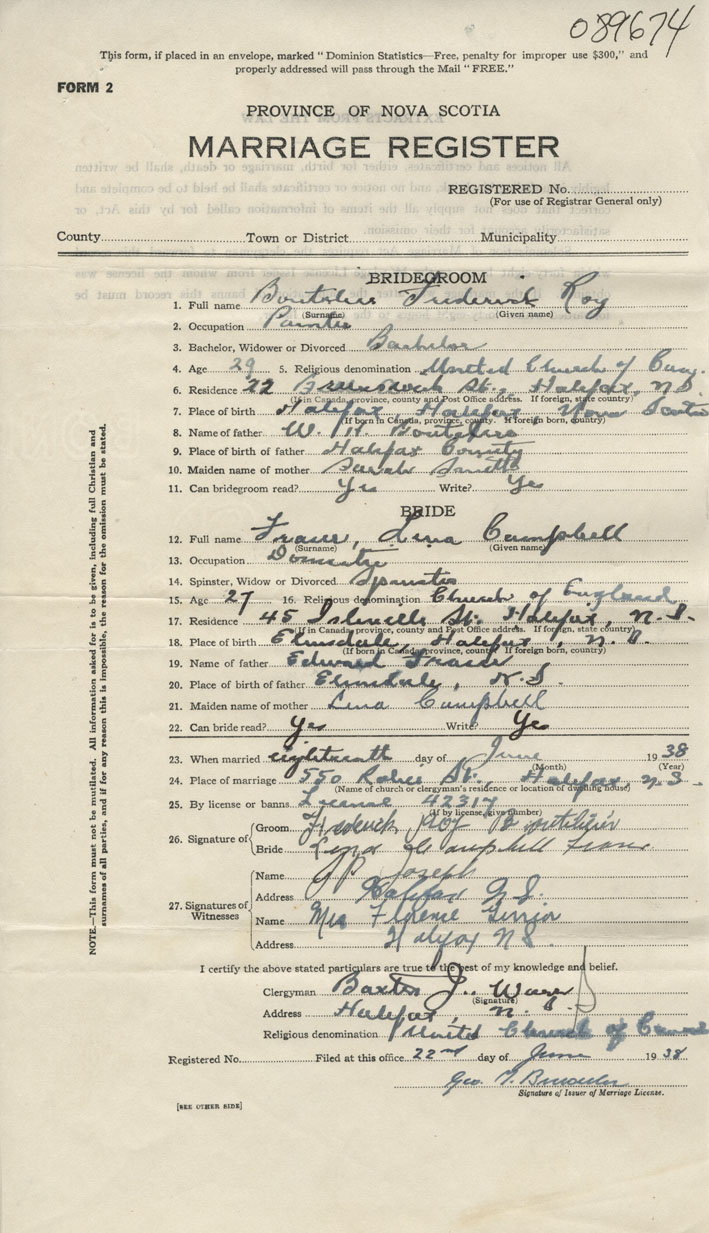 089674
This form, if placed in an envelope, marked "Dominion Statistics—Free, penalty for improper use $300," and
properly addressed will pass through the Mail "FREE."
FORM 2
PROVINCE OF NOVA SCOTIA
MARRIAGE REGISTER
REGISTERED No.
(For use of Registrar General only)
County Town or District Municipality
BRIDEGROOM
1. Full name Boutilier Frederick Roy
(Surname) (Given name)
2. Occupation Painter
3. Bachelor, Widower or Divorced Bachelor
4. Age 29 5. Religious denomination United Church of Can.
6. Residence 22 Brunswick St., Halifax, N.S.
(If in Canada, province, county and Post Office address. If foreign, state country)
7. Place of birth Halifax, Halifax Nova Scotia
(If born in Canada, province, county. If foreign born, country)
8. Name of father W. H. Boutilier
9. Place of father Halifax County
10. Maiden name of mother Sarah Smith
11. Can bridegroom read? Yes Write? Yes
BRIDE
12. Full name Fraser, Lena Campbell
(Surname) (Given name)
13. Occupation Domestic
14. Spinster, Widow or Divorced Spinster
15. Age 27 16. Religious denomination Church of England
17. Residence 45 Isleville St. Halifax, N.S.
(If in Canada, province, county and Post Office address. If foreign, state country)
18. Place of birth Elmsdale, Halifax, N.S.
(If born in Canada, province, county. If foreign born, country)
19. Name of father Edward Fraser
20. Place of birth of father Elmsdale, N.S.
21. Maiden name of mother Lena Campbell
22. Can bride read? Yes Write? Yes
23. When married eighteenth day of June 1938
(Month) (Year)
24. Place of marriage 550 Robie St., Halifax N.S.
(Name of church or clergyman's residence or location of dwelling house)
25. By license or banns License 42317
(If by license, give number)
26. Signature of Groom Frederick Roy Boutilier
Bride Lena Campbell Fraser
27. Signatures of Witnesses Name J P Joseph
Address Halifax N.S.
Name Mrs Florence
Address Halifax N S
I certify the above stated particulars are true to the best of my knowledge and belief.
Clergyman Baxter J.
(Signature)
Address Halifax, N.S.
Religious denomination United Church of Canada
Registered No. Filed at this office 22nd day of June 1938
Geo.
Signature of Issuer of Marriage License.
[SEE OTHER SIDE]
NOTE.—This form must not be mutilated. All information asked for is to be given, including full Christian and
surnames of all parties, and if for any reason this is impossible, the reason for the omission must be stated.